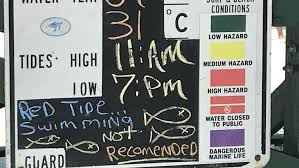 CONDITIONS
31 °C
LOW HAZARD
11:AM
MEDIUM HAZARD
TIDES: HIGH
7:PM
LOW
HIGH HAZARD
RED TIDE
SWIMMING
NOT
RECOMENDED
WATER CLOSED
TO PUBLIC
DANGEROUS
MARINE LIFE
GUARD